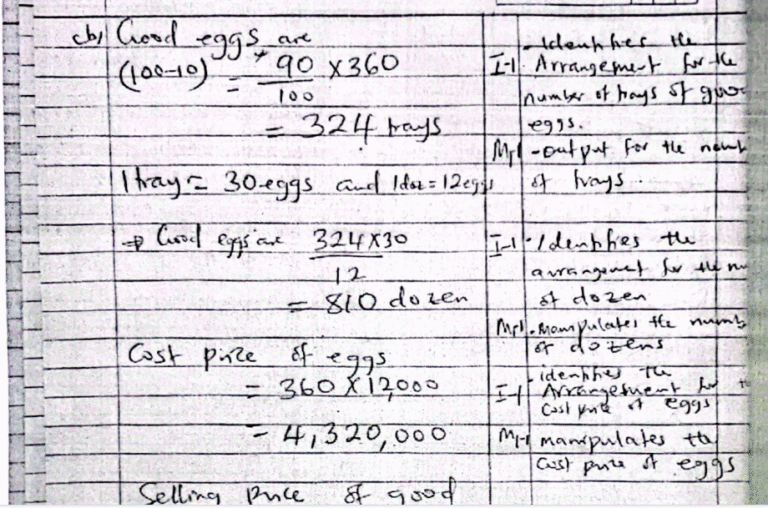 (b) Good eggs are
(100-10) = 90/100 × 360
= 324 trays
1 tray = 30 eggs and 1 doz = 12 eggs
⇒ Good eggs are 324×30/12
= 810 dozen
Cost price of eggs
= 360 × 12,000
= 4,320,000
Selling price of good
I-1 - Identifies the
Arrangement for the
number of trays of
eggs.
M-1 - output for the
of trays.
I-1 - Identifies the
arrangement for the
of dozen
M-1 - Manipulates the
of dozens
I-1 - identifies the
Arrangement for
Cost price of eggs
M-1 manipulates the
Cost price of eggs